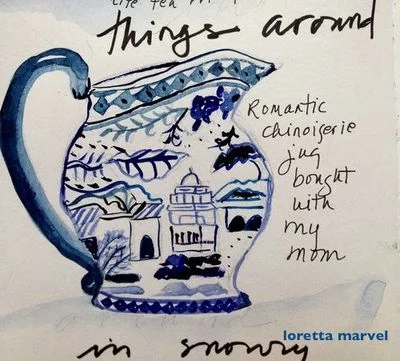 things around
Romantic
chinoiserie
jug
bought
with
my
mom
loretta marvel
in snowy